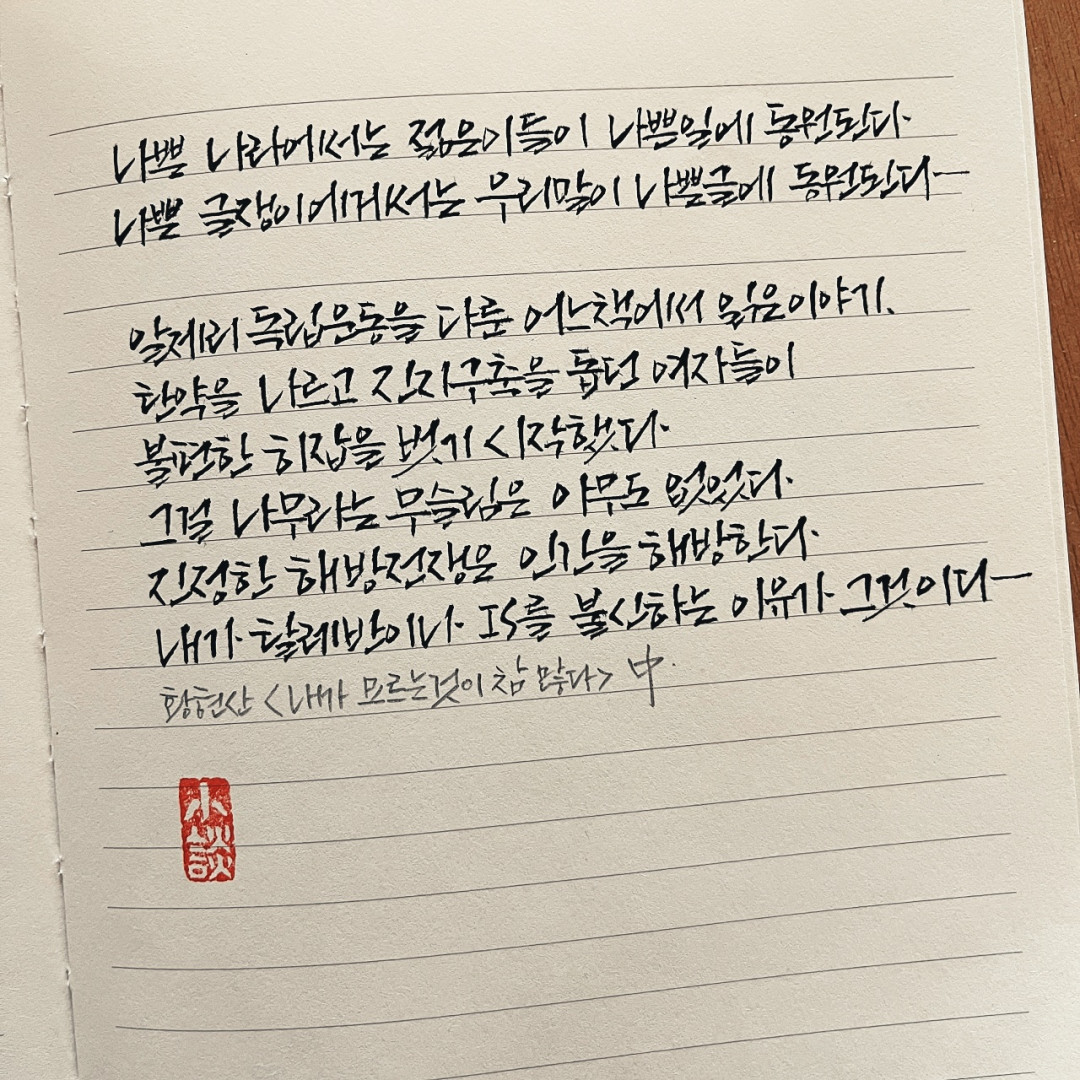 나쁜 나라에서는 젊은이들이 나쁜일에 동원된다.
나쁜 글쟁이에게서는 우리말이 나쁜글에 동원된다—
알제리 독립운동을 다룬 어느책에서 읽은이야기.
탄약을 나르고 진지구축을 돕던 여자들이
불편한 히잡을 벗기 시작했다.
그걸 나무라는 무슬림은 아무도 없었다.
진정한 해방전쟁은 인간을 해방한다.
내가 탈레반이나 IS를 불신하는 이유가 그것이다—
황현산 <내가 모르는것이 참 많다> 中.
小談